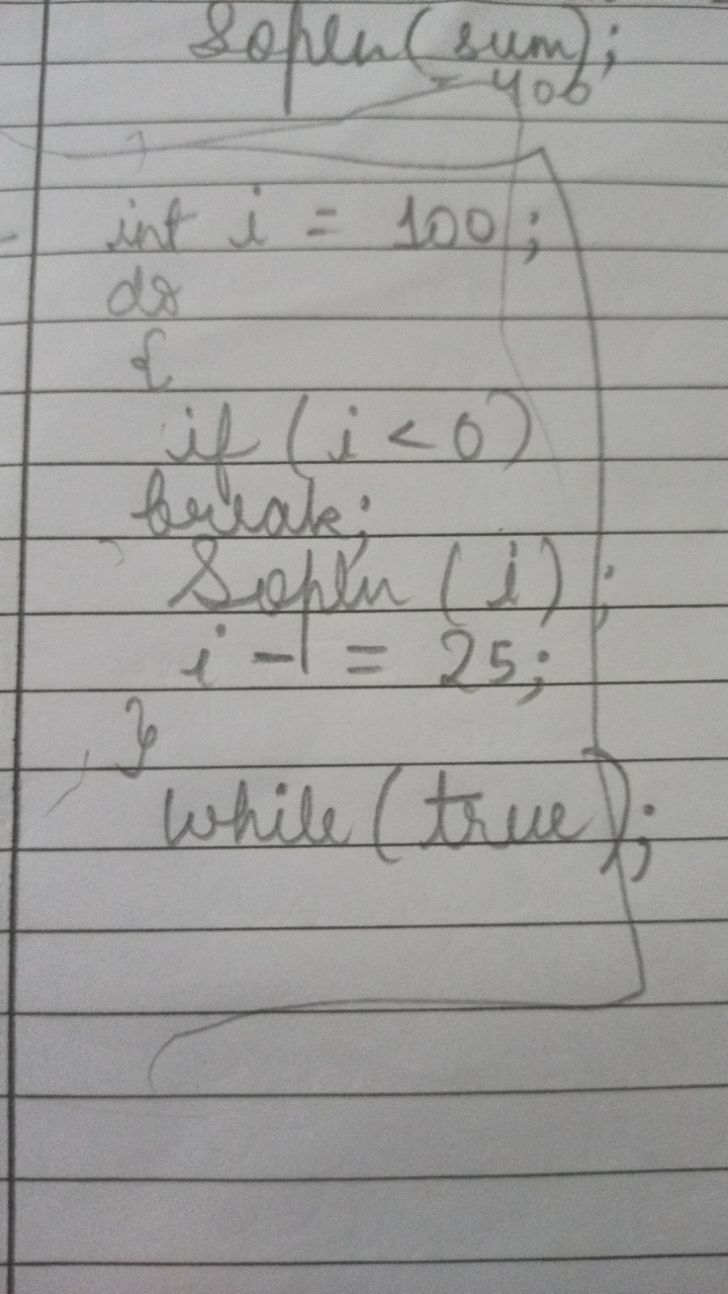 Sopln(sum);
= 406
int i = 100;
do
{
if (i < 0)
break;
Sopln (i);
i -= 25;
}
while (true);